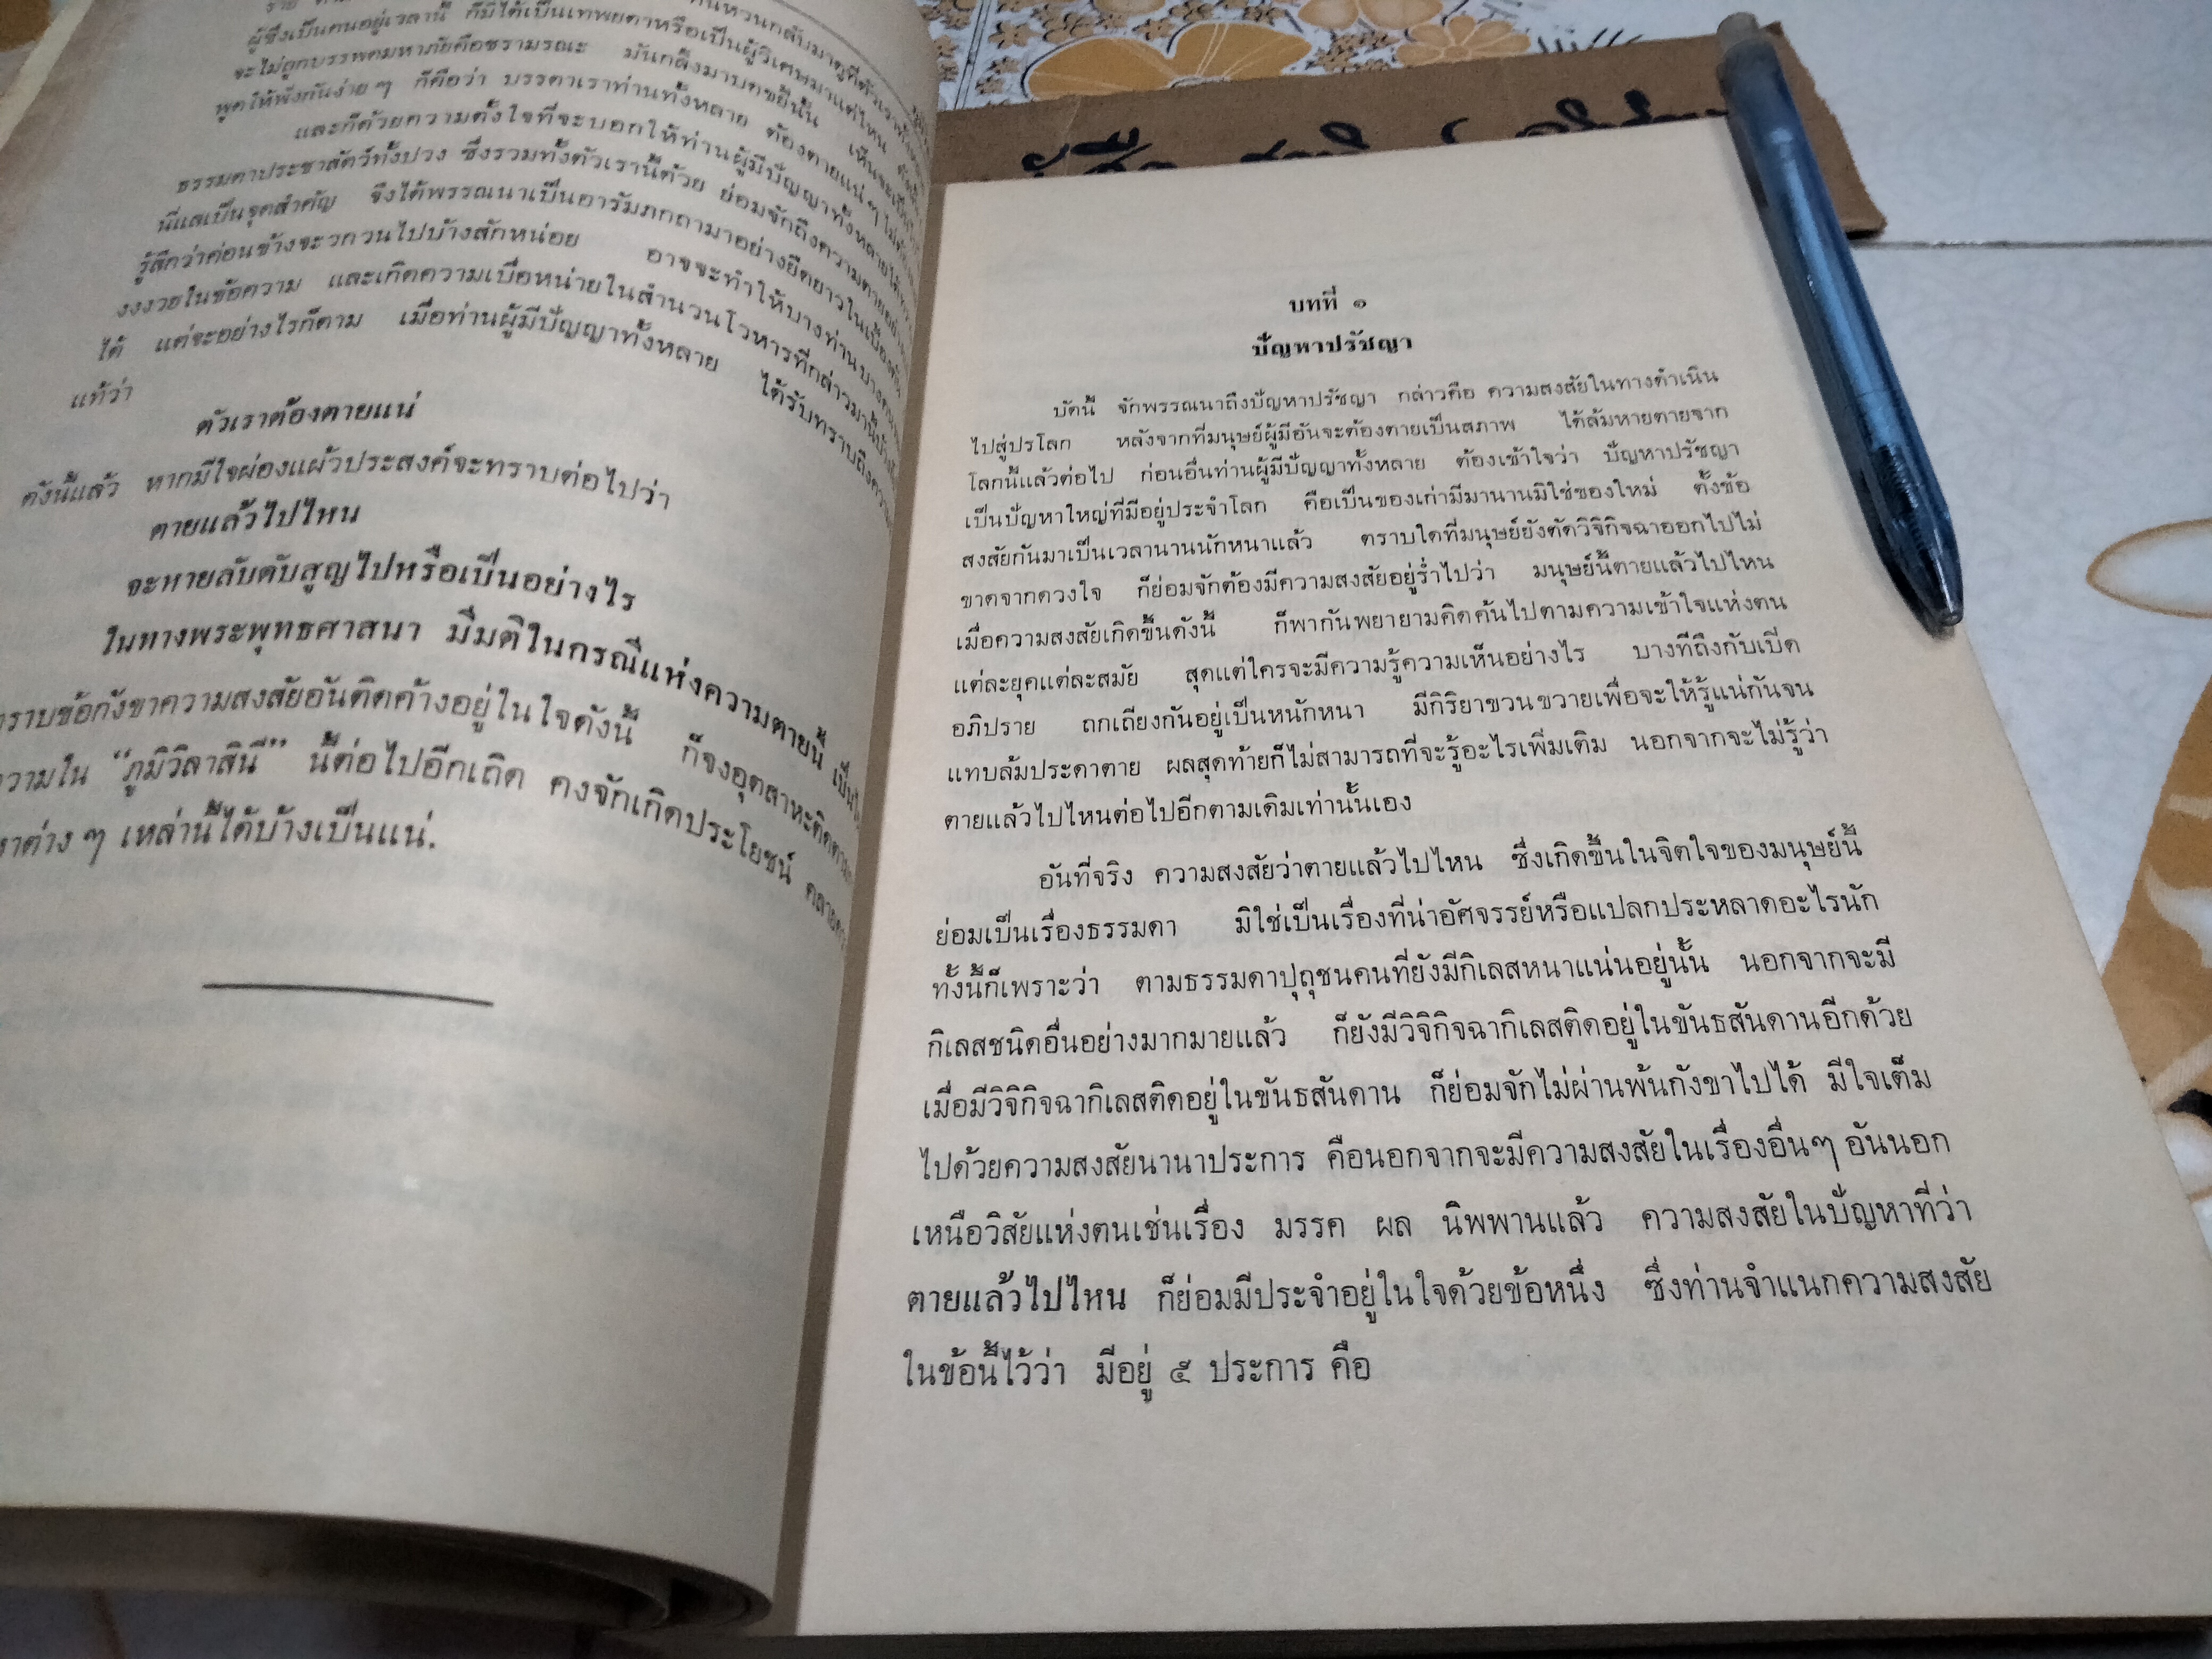 ผู้ซึ่งเป็นคนอยู่เวลานี้ ก็มิได้เป็นเทพยดาหรือเป็นผู้วิเศษมาแต่ไหน
จะไม่ถูกบรรพตมหาภัยคือชรามรณะ มันกลิ้งมาบดขยี้นั้น เห็นจะเป็น
พูดให้ฟังกันง่าย ๆ ก็คือว่า บรรดาเราท่านทั้งหลาย ต้องตายแน่ ๆ
และก็ด้วยความตั้งใจที่จะบอกให้ท่านผู้มีปัญญาทั้งหลายได้
ธรรมดาประชาสัตว์ทั้งปวง ซึ่งรวมทั้งตัวเรานี้ด้วย ย่อมจักถึงความตาย
นี่แลเป็นจุดสำคัญ จึงได้พรรณนาเป็นอารัมภกถามาอย่างยืดยาวในเบื้องต้น
รู้สึกว่าค่อนข้างจะวกวนไปบ้างสักหน่อย อาจจะทำให้บางท่านบางคน
งงงวยในข้อความ และเกิดความเบื่อหน่ายในสำนวนโวหารที่กล่าวมานี้บ้าง
ได้ แต่จะอย่างไรก็ตาม เมื่อท่านผู้มีปัญญาทั้งหลาย ได้รับทราบถึงความ
แท้ว่า
ตัวเราต้องตายแน่
ดังนี้แล้ว หากมีใจผ่องแผ้วประสงค์จะทราบต่อไปว่า
ตายแล้วไปไหน
จะหายลับดับสูญไปหรือเป็นอย่างไร
ในทางพระพุทธศาสนา มีมติในกรณีแห่งความตายนี้
ทราบข้อกังขาความสงสัยอันติดค้างอยู่ในใจดังนี้ ก็จงอุตสาหะติดตาม
ความใน “ภูมิวิลาสินี” นี้ต่อไปอีกเถิด คงจักเกิดประโยชน์
หาต่าง ๆ เหล่านี้ได้บ้างเป็นแน่.
บทที่ ๑
ปัญหาปรัชญา
บัดนี้ จักพรรณนาถึงปัญหาปรัชญา กล่าวคือ ความสงสัยในทางดำเนิน
ไปสู่ปรโลก หลังจากที่มนุษย์ผู้มีอันจะต้องตายเป็นสภาพ ได้ล้มหายตายจาก
โลกนี้แล้วต่อไป ก่อนอื่นท่านผู้มีปัญญาทั้งหลาย ต้องเข้าใจว่า ปัญหาปรัชญา
เป็นปัญหาใหญ่ที่มีอยู่ประจำโลก คือเป็นของเก่ามีมานานมิใช่ของใหม่ ตั้งข้อ
สงสัยกันมาเป็นเวลานานนักหนาแล้ว ตราบใดที่มนุษย์ยังตัดวิจิกิจฉาออกไปไม่
ขาดจากดวงใจ ก็ย่อมจักต้องมีความสงสัยอยู่ร่ำไปว่า มนุษย์นี้ตายแล้วไปไหน
เมื่อความสงสัยเกิดขึ้นดังนี้ ก็พากันพยายามคิดค้นไปตามความเข้าใจแห่งตน
แต่ละยุคแต่ละสมัย สุดแต่ใครจะมีความรู้ความเห็นอย่างไร บางทีถึงกับเปิด
อภิปราย ถกเถียงกันอยู่เป็นหนักหนา มีกิริยาขวนขวายเพื่อจะให้รู้แน่กันจน
แทบล้มประดาตาย ผลสุดท้ายก็ไม่สามารถที่จะรู้อะไรเพิ่มเติม นอกจากจะไม่รู้ว่า
ตายแล้วไปไหนต่อไปอีกตามเดิมเท่านั้นเอง
อันที่จริง ความสงสัยว่าตายแล้วไปไหน ซึ่งเกิดขึ้นในจิตใจของมนุษย์นี้
ย่อมเป็นเรื่องธรรมดา มิใช่เป็นเรื่องที่น่าอัศจรรย์หรือแปลกประหลาดอะไรนัก
ทั้งนี้ก็เพราะว่า ตามธรรมดาปุถุชนคนที่ยังมีกิเลสหนาแน่นอยู่นั้น นอกจากจะมี
กิเลสชนิดอื่นอย่างมากมายแล้ว ก็ยังมีวิจิกิจฉากิเลสติดอยู่ในขันธสันดานอีกด้วย
เมื่อมีวิจิกิจฉากิเลสติดอยู่ในขันธสันดาน ก็ย่อมจักไม่ผ่านพ้นกังขาไปได้ มีใจเต็ม
ไปด้วยความสงสัยนานาประการ คือนอกจากจะมีความสงสัยในเรื่องอื่นๆ อันนอก
เหนือวิสัยแห่งตนเช่นเรื่อง มรรค ผล นิพพานแล้ว ความสงสัยในปัญหาที่ว่า
ตายแล้วไปไหน ก็ย่อมมีประจำอยู่ในใจด้วยข้อหนึ่ง ซึ่งท่านจำแนกความสงสัย
ในข้อนี้ไว้ว่า มีอยู่ ๕ ประการ คือ